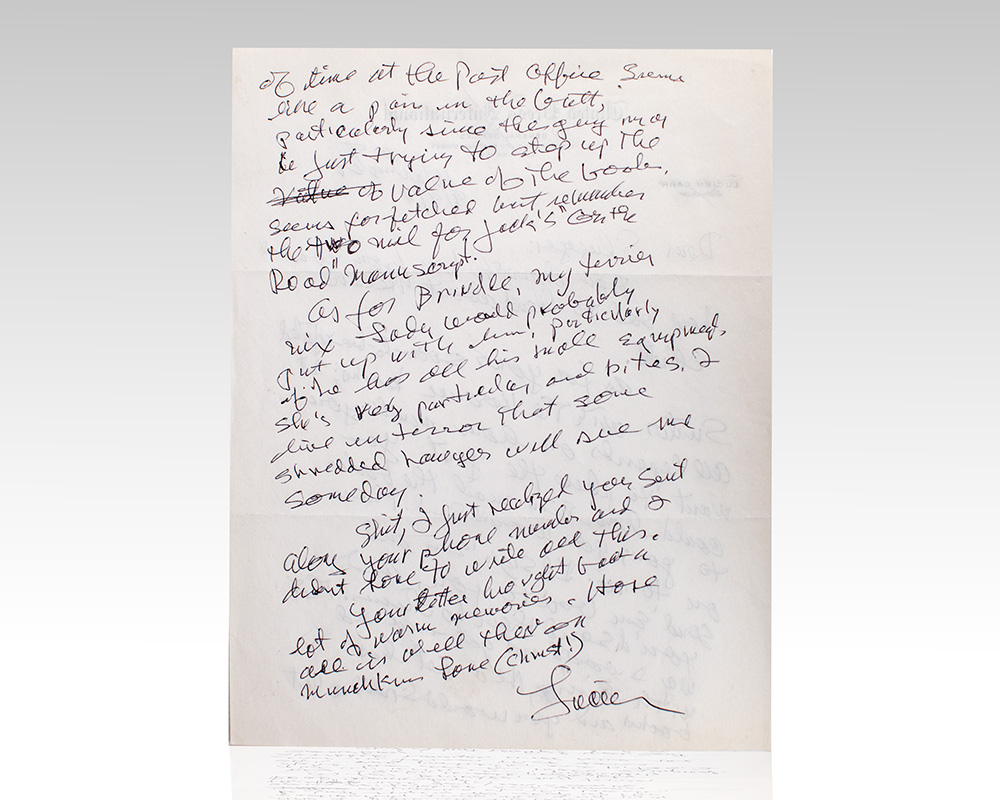 of time at the Post Office seems
like a pain in the butt,
particularly since the guy may
be just trying to step up the
value of value of the books,
seems far fetched but remember
the two mil for Jack's "On the
Road" manuscript.
As for Brindle, my terrier
mix Lady would probably
put up with him, particularly
if he has all his male equipment,
she's very particular and bites. I
live in terror that some
shredded lawyer will sue me
someday.
Shit, I just realized you sent
along your phone number and I
didn't have to write all this.
Your letter brought back a
lot of warm memories. Hope
all is well there on
Munchkin Lane (Christ!)
Lucien